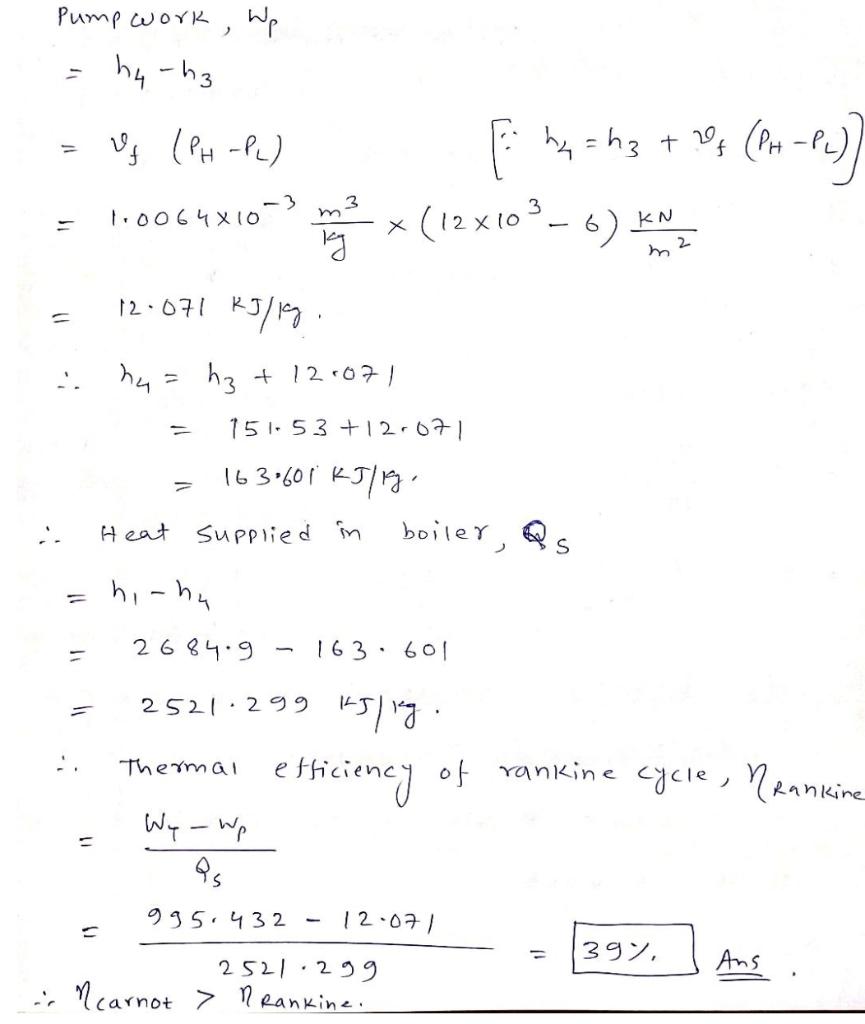 Pump work, Wp
= h4 - h3
= vf (PH - PL) [∵ h4 = h3 + vf (PH - PL)]
= 1.0064 × 10⁻³ m³/kg × (12 × 10³ - 6) KN/m²
= 12.071 KJ/kg.
∴ h4 = h3 + 12.071
= 151.53 + 12.071
= 163.601 KJ/kg.
∴ Heat supplied in boiler, Qs
= h1 - h4
= 2684.9 - 163.601
= 2521.299 KJ/kg.
∴ Thermal efficiency of rankine cycle, ηRankine
= WT - Wp
Qs
= 995.432 - 12.071
2521.299
= 39%. Ans.
∴ ηcarnot > ηRankine.